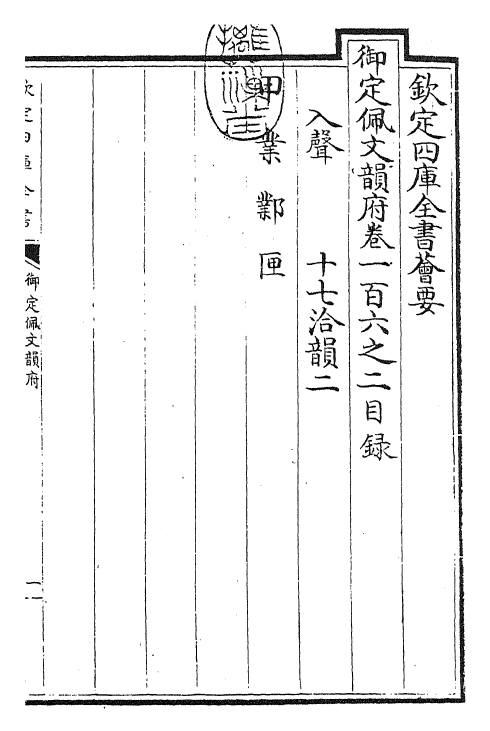 欽定四庫全書薈要
御定佩文韻府卷一百六之二目録
入聲　十七洽韻二
甲　業　鄴　匣
欽定四庫全書
御定佩文韻府
一